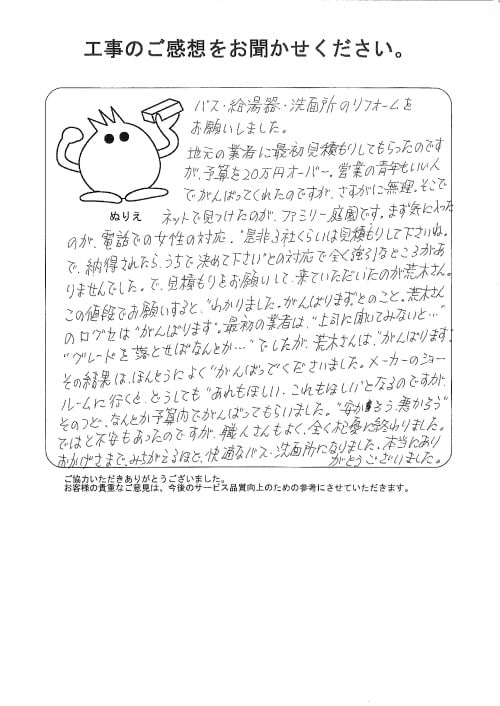 工事のご感想をお聞かせください。
バス・給湯器・洗面所のリフォームを
お願いしました。
地元の業者に最初見積もりしてもらったのです
が、予算を20万円オーバー。営業の青年もいい人
でがんばってくれたのですが、さすがに無理。そこで
ぬりえ
ネットで見つけたのが、ファミリー庭園です。まず気に入った
のが、電話での女性の対応。"是非3社くらいは見積もりして下さいね。
で、納得されたら、うちで決めて下さい"との対応で全く強引なところがあ
りませんでした。で、見積もりをお願いして、来ていただいたのが荒木さん。
この値段でお願いすると、"わかりました。がんばります"とのこと。荒木さん
のログセは"がんばります"。最初の業者は、"上司に聞いてみないと…"
"グレードを落とせばなんとか…"でしたが、荒木さんは、"がんばります"
その結果は、ほんとうによく"がんばって"くださいました。メーカーのショー
ルームに行くと、どうしても"あれもほしい、これもほしい"となるのですが、
そのつど、なんとか予算内でがんばってもらいました。"安かろう、悪かろう"
ではと不安もあったのですが、職人さんもよく、全く杞憂に終わりました。
おかげさまで、みちがえるほど、快適なバス・洗面所になりました。本当にあり
がとうございました。
ご協力いただきありがとうございました。
お客様の貴重なご意見は、今後のサービス品質向上のための参考にさせていただきます。